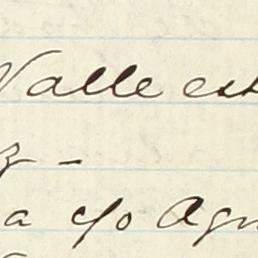 Valle est
z -
a c/o Agu